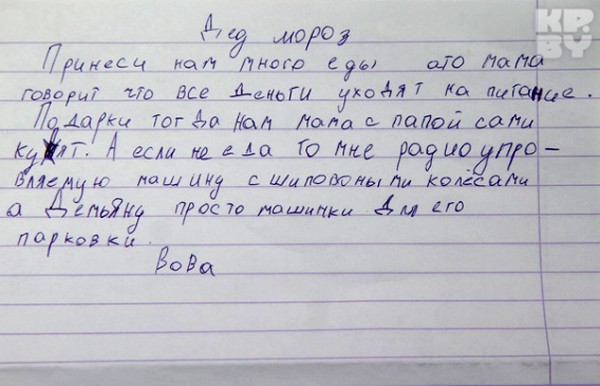 KP.
BY
Дед мороз
Принеси нам много еды ато мама
говорит что все деньги уходят на питание.
Подарки тогда нам мама с папой сами
купят. А если не еда то мне радиоупро-
вляемую машину с шиповоными колёсами
а Демьяну просто машинки для его
парковки.
Вова